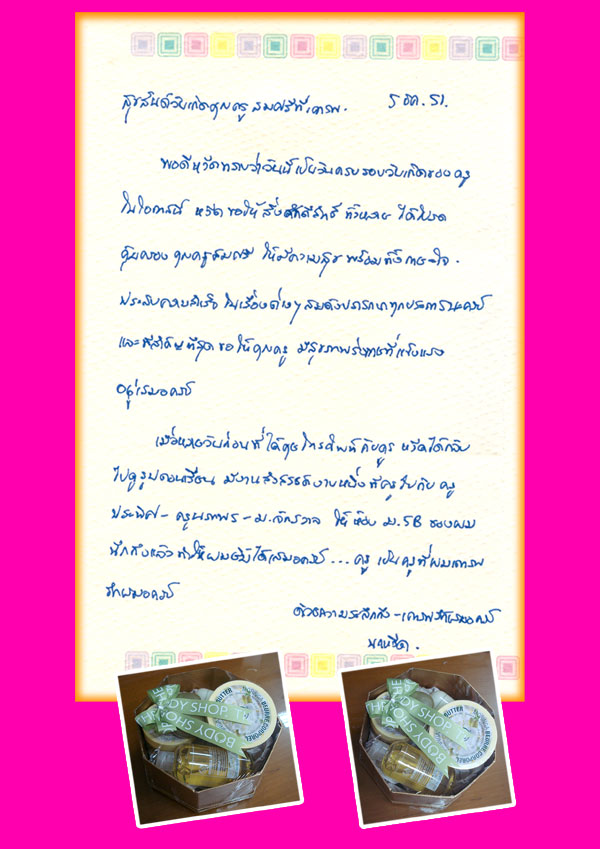 สุขสันต์วันเกิดคุณครู สมศรีที่เคารพ. 5 ธค. 51.
พอดีหวัดทราบว่าวันนี้เป็นวันครบรอบวันเกิดของครู
ในโอกาสนี้ ขอให้สิ่งศักดิ์สิทธิ์ ทั้งหลาย ได้โปรด
คุ้มครอง คุณครูสมศรี ให้มีความสุข พร้อมทั้งกาย-ใจ.
ประสบความสำเร็จ ในเรื่องต่างๆ สมดังปรารถนาทุกประการนะครับ
และที่สำคัญที่สุด ขอให้คุณครู มีสุขภาพร่างกายที่แข็งแรง
อยู่เสมอครับ
เมื่อหลายวันก่อนที่ได้คุยโทรศัพท์กับครู ได้กลับ
ไปดูรูปตอนเรียน มีงานสังสรรค์งานหนึ่ง ที่ครู กับ ครู
ประพิศ - ครูนภาพร - ม. ให้ห้อง ม.5B ของผม
นึกถึงแล้วทำให้ผมยิ้มได้เสมอครับ ... ครู เป็นครูที่ผมเคารพ
รักเสมอครับ
ด้วยความระลึกถึง - เคารพรักเสมอครับ
BODY SHOP
BODY SHOP
BUTTER
BEURRE CORPOREL
BODY SHOP
BODY SHOP
BUTTER
BEURRE CORPOREL